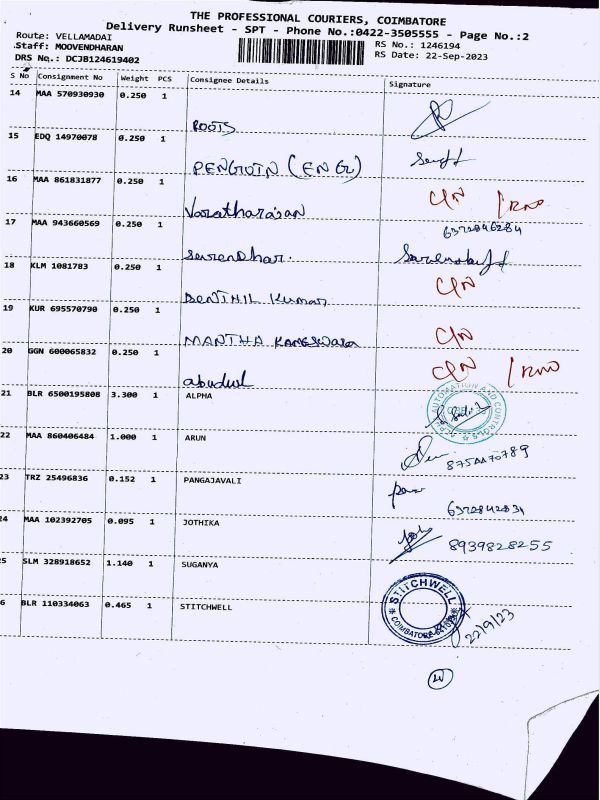 THE PROFESSIONAL COURIERS, COIMBATORE
Delivery Runsheet - SPT - Phone No.:0422-3505555 - Page No.:2
Route: VELLAMADAI
Staff: MOOVENDHARAN
DRS No.: DCJB124619402
RS No.: 1246194
RS Date: 22-Sep-2023
S No Consignment No Weight PCS Consignee Details Signature
14 MAA 570930930 0.250 1 ROOTS
15 EDQ 14970078 0.250 1 PENGUIN (ENGG)
16 MAA 861831877 0.250 1 Varatharajan C/N /RNO
17 MAA 943660569 0.250 1 Sarendhar. 6372846284
18 KLM 1081783 0.250 1 SENTHIL Kumar C/N
19 KUR 695570790 0.250 1 MANTHA KAMESWARA C/N
20 GGN 600065832 0.250 1 abudul C/N /RNO
21 BLR 6500195808 3.300 1 ALPHA AUTOMATION AND CONTROLS
22 MAA 860406484 1.000 1 ARUN
23 TRZ 25496836 0.152 1 PANGAJAVALI
24 MAA 102392705 0.095 1 JOTHIKA 8939828255
25 SLM 328918652 1.140 1 SUGANYA
26 BLR 110334063 0.465 1 STITCHWELL STITCHWELL COIMBATORE 22/9/23